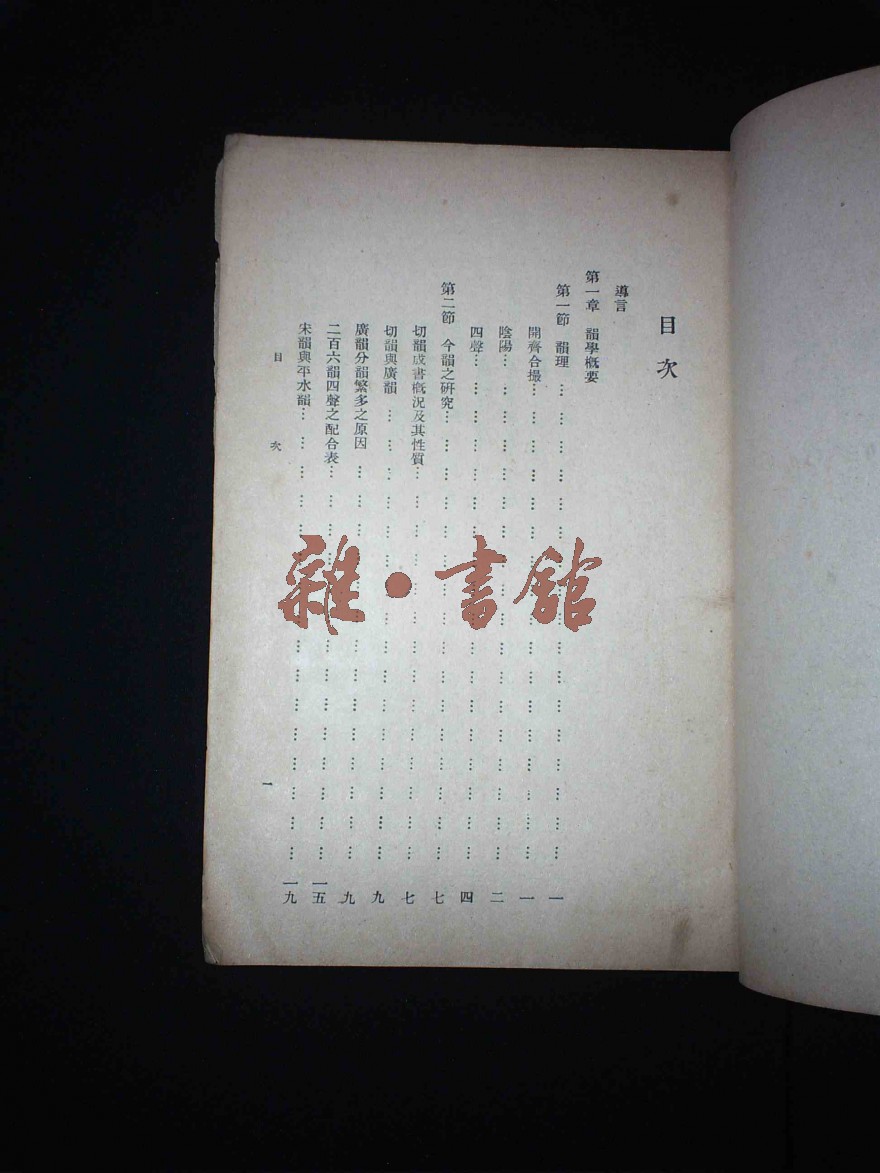 目次
導言
第一章 韻學概要
第一節 韻理 … … … … … … … … … … … … … … … … … 一
開齊合撮… … … … … … … … … … … … … … … … … 一
陰陽… … … … … … … … … … … … … … … … … 二
四聲… … … … … … … … … … … … … … … … … … 四
第二節 今韻之研究… … … … … … … … … … … … … … … … 七
切韻成書概況及其性質… … … … … … … … … … … … … … 七
切韻與廣韻 … … … … … … … … … … … … … … … … 九
廣韻分韻繁多之原因 … … … … … … … … … … … … … … 九
二百六韻四聲之配合表… … … … … … … … … … … … … … 一五
宋韻與平水韻… … … … … … … … … … … … … … … … 一九
目次
一
雜·書館